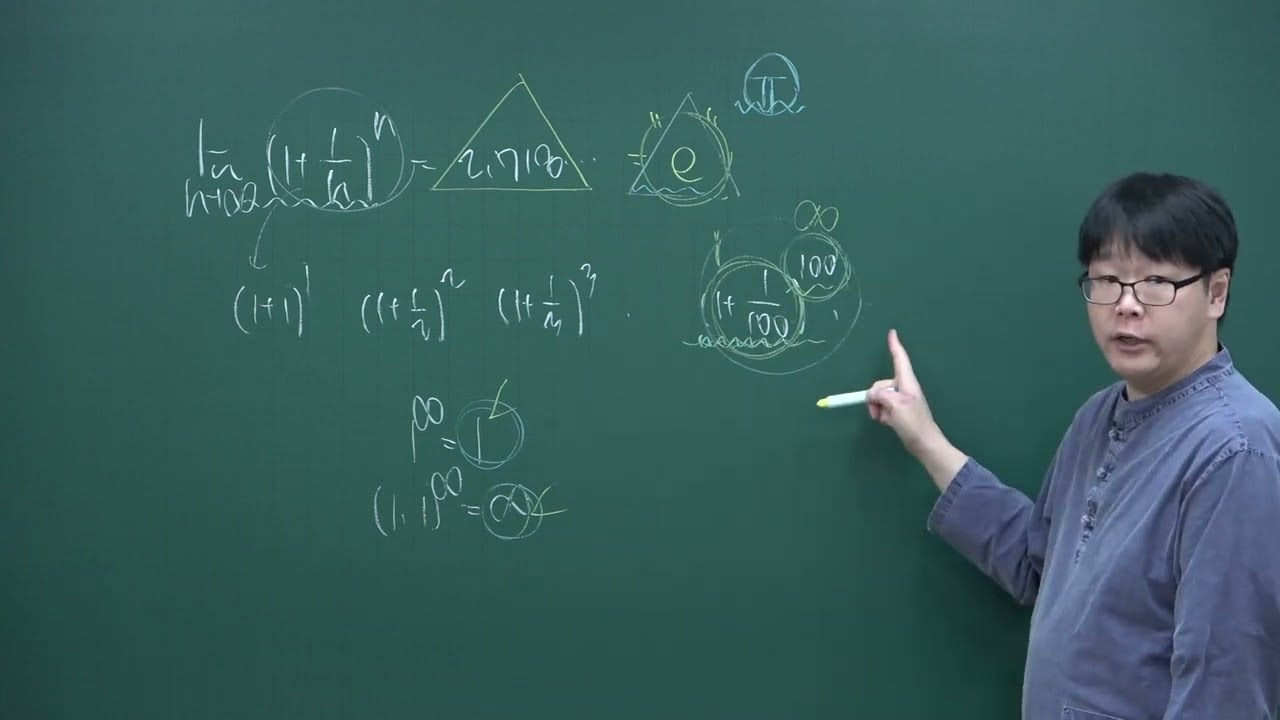 π
lim n→∞ (1 + 1/n)^n = 2.718... = e
∞
(1+1)^1 (1+1/2)^2 (1+1/3)^3 . (1+1/100)^100
1^∞ = 1
(1.1)^∞ = ∞